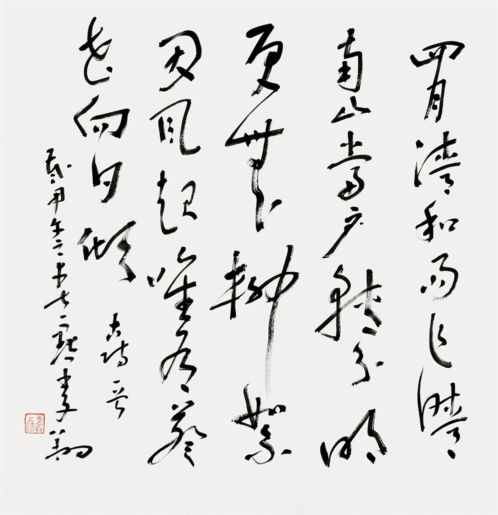 四月清和雨乍晴
南山當户轉分明
更無柳絮
因風起唯有葵
花向日傾
古詩
甲午